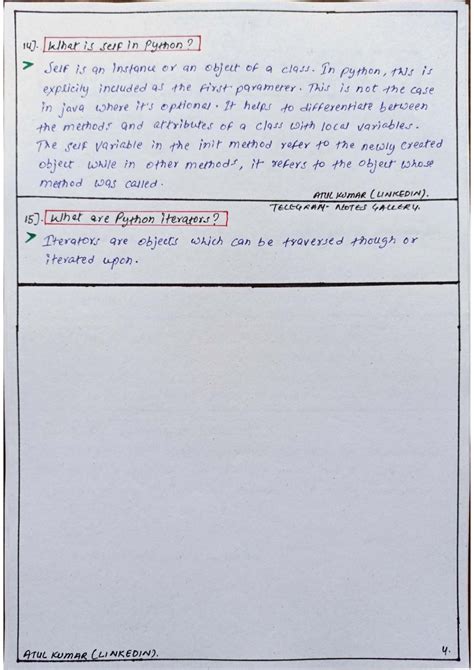 14]. What is self in Python?
Self is an instance or an object of a class. In python, this is
explicity included as the first paramerer. This is not the case
in java where it's optional. It helps to differentiate between
the methods and attributes of a class with local variables.
The self variable in the init method refer to the newly created
object while in other methods, it refers to the object whose
method was called.
ATUL KUMAR (LINKEDIN).
TELEGRAM- NOTES GALLERY.
15]. What are Python iterators?
Iterators are objects which can be traversed though or
iterated upon.
ATUL KUMAR (LINKEDIN).
4.